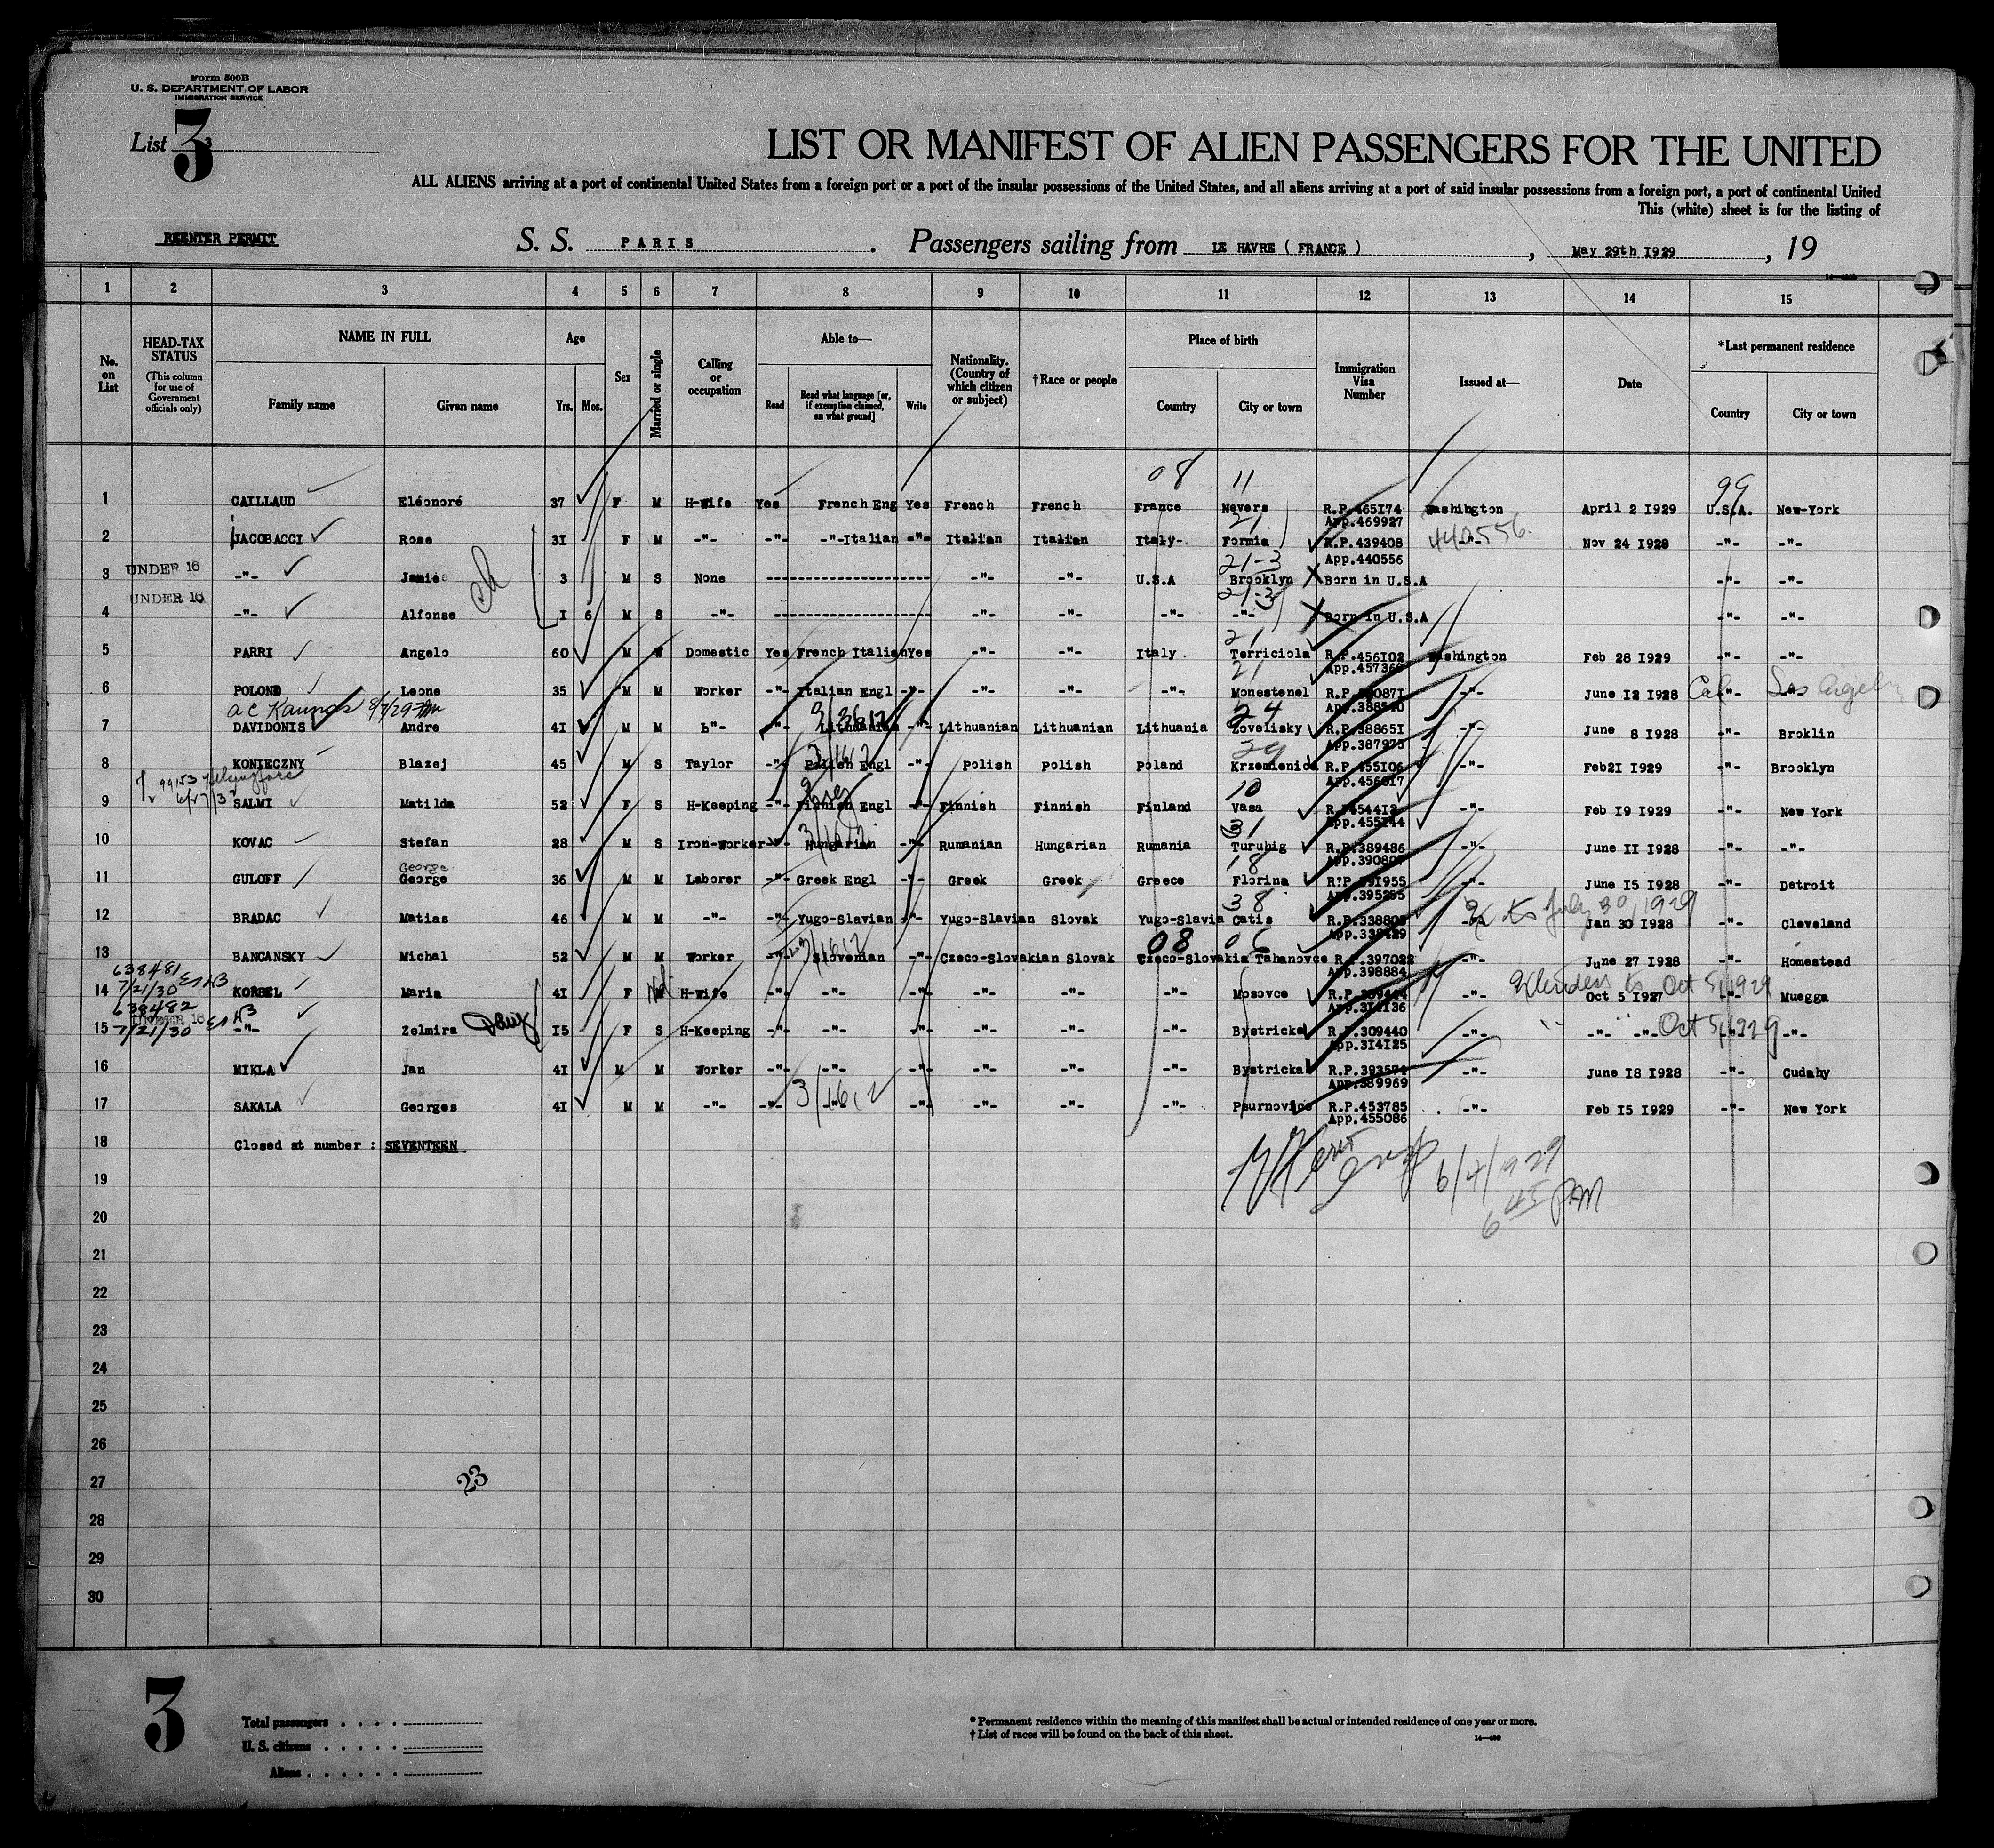 Form 500B
U. S. DEPARTMENT OF LABOR
IMMIGRATION SERVICE
List 3
LIST OR MANIFEST OF ALIEN PASSENGERS FOR THE UNITED
ALL ALIENS arriving at a port of continental United States from a foreign port or a port of the insular possessions of the United States, and all aliens arriving at a port of said insular possessions from a foreign port, a port of continental United
This (white) sheet is for the listing of
REENTER PERMIT
S. S. PARIS. Passengers sailing from LE HAVRE ( FRANCE ), May 29th 1929, 19
1 2 3 4 5 6 7 8 9 10 11 12 13 14 15
No. on List
HEAD-TAX STATUS (This column for use of Government officials only)
NAME IN FULL
Family name Given name
Age
Yrs. Mos.
Sex
Married or single
Calling or occupation
Able to—
Read
Read what language [or, if exemption claimed, on what ground]
Write
Nationality. (Country of which citizen or subject)
†Race or people
Place of birth
Country City or town
Immigration Visa Number
Issued at—
Date
*Last permanent residence
Country City or town
08 11 99
1 CAILLAUD Eléonoré 37 F M H-Wife Yes French Eng Yes French French France Nevers R.P.465174 App.469927 Washington April 2 1929 U.S.A. New-York
21 440556
2 JACOBACCI Rose 31 F M -"- -"-Italian -"- Italian Italian Italy Formia R.P.439408 App.440556 -"- Nov 24 1928 -"- -"-
21-3
3 UNDER 16 -"- Jamie 3 M S None -"- -"- U.S.A Brooklyn Born in U.S.A -"- -"-
21-3
4 UNDER 16 -"- Alfonse 1 6 M S -"- -"- -"- -"- -"- Born in U.S.A -"- -"-
21
5 PARRI Angelo 60 M W Domestic Yes French Italian Yes -"- -"- Italy Terriciola R.P.456102 App.457368 Washington Feb 28 1929 -"- -"-
21
6 POLONO Leone 35 M M Worker -"- Italian Engl -"- -"- -"- -"- Monestenel App.388540 -"- June 12 1928 Cal -"- Los Angeles
24
7 DAVIDONIS Andre 41 M M -"- -"- Lithuanian -"- Lithuanian Lithuanian Lithuania Zovelisky R.P.388651 App.387975 -"- June 8 1928 -"- Broklin
8 KONIECZNY Blazej 45 M S Taylor -"- Polish Engl -"- Polish Polish Poland Krzemienica R.P.455106 App.456017 -"- Feb21 1929 -"- Brooklyn
10
9 SALMI Matilda 52 F S H-Keeping -"- Finnish Engl -"- Finnish Finnish Finland Vasa App.455244 -"- Feb 19 1929 -"- New York
31
10 KOVAC Stefan 28 M S Iron-Worker -"- Hungarian -"- Rumanian Hungarian Rumania Turubig R.P.389486 -"- June 11 1928 -"- -"-
George 18
11 GULOFF George 36 M M Laborer -"- Greek Engl -"- Greek Greek Greece Florina R.P.391955 App.395255 -"- June 15 1928 -"- Detroit
38 July 30, 1929
12 BRADAC Matias 46 M M -"- -"- Yugo-Slavian -"- Yugo-Slavian Slovak Yugo-Slavia Catis -"- Jan 30 1928 -"- Cleveland
08 06
13 BANCANSKY Michal 52 M M Worker -"- Slovenian -"- Czeco-Slovakian Slovak Czeco-Slovakia Tahanovce App.398884 -"- June 27 1928 -"- Homestead
638481 7/21/30 Oct 5, 1929
14 KORBEL Maria 41 F H-wife -"- -"- -"- -"- -"- -"- Mosovce -"- Oct 5 1927 -"- Muegga
638482 7/21/30 Oct 5, 1929
15 UNDER 16 -"- Zelmira 15 F S H-Keeping -"- -"- -"- -"- -"- -"- Bystricka R.P.309440 App.314125 -"- -"- -"- -"-
16 MIKLA Jan 41 M M Worker -"- -"- -"- -"- -"- -"- Bystricka App.389969 -"- June 18 1928 -"- Cudahy
17 SAKALA Georges 41 M M -"- -"- -"- -"- -"- -"- -"- Psurnovice R.P.453785 App.455086 -"- Feb 15 1929 -"- New York
18 Closed at number : SEVENTEEN
6/4/1929
6 45 PM
19
20
21
22
23
24
25
26
27
23
28
29
30
3
Total passengers
U. S. citizens
Aliens
* Permanent residence within the meaning of this manifest shall be actual or intended residence of one year or more.
† List of races will be found on the back of this sheet.